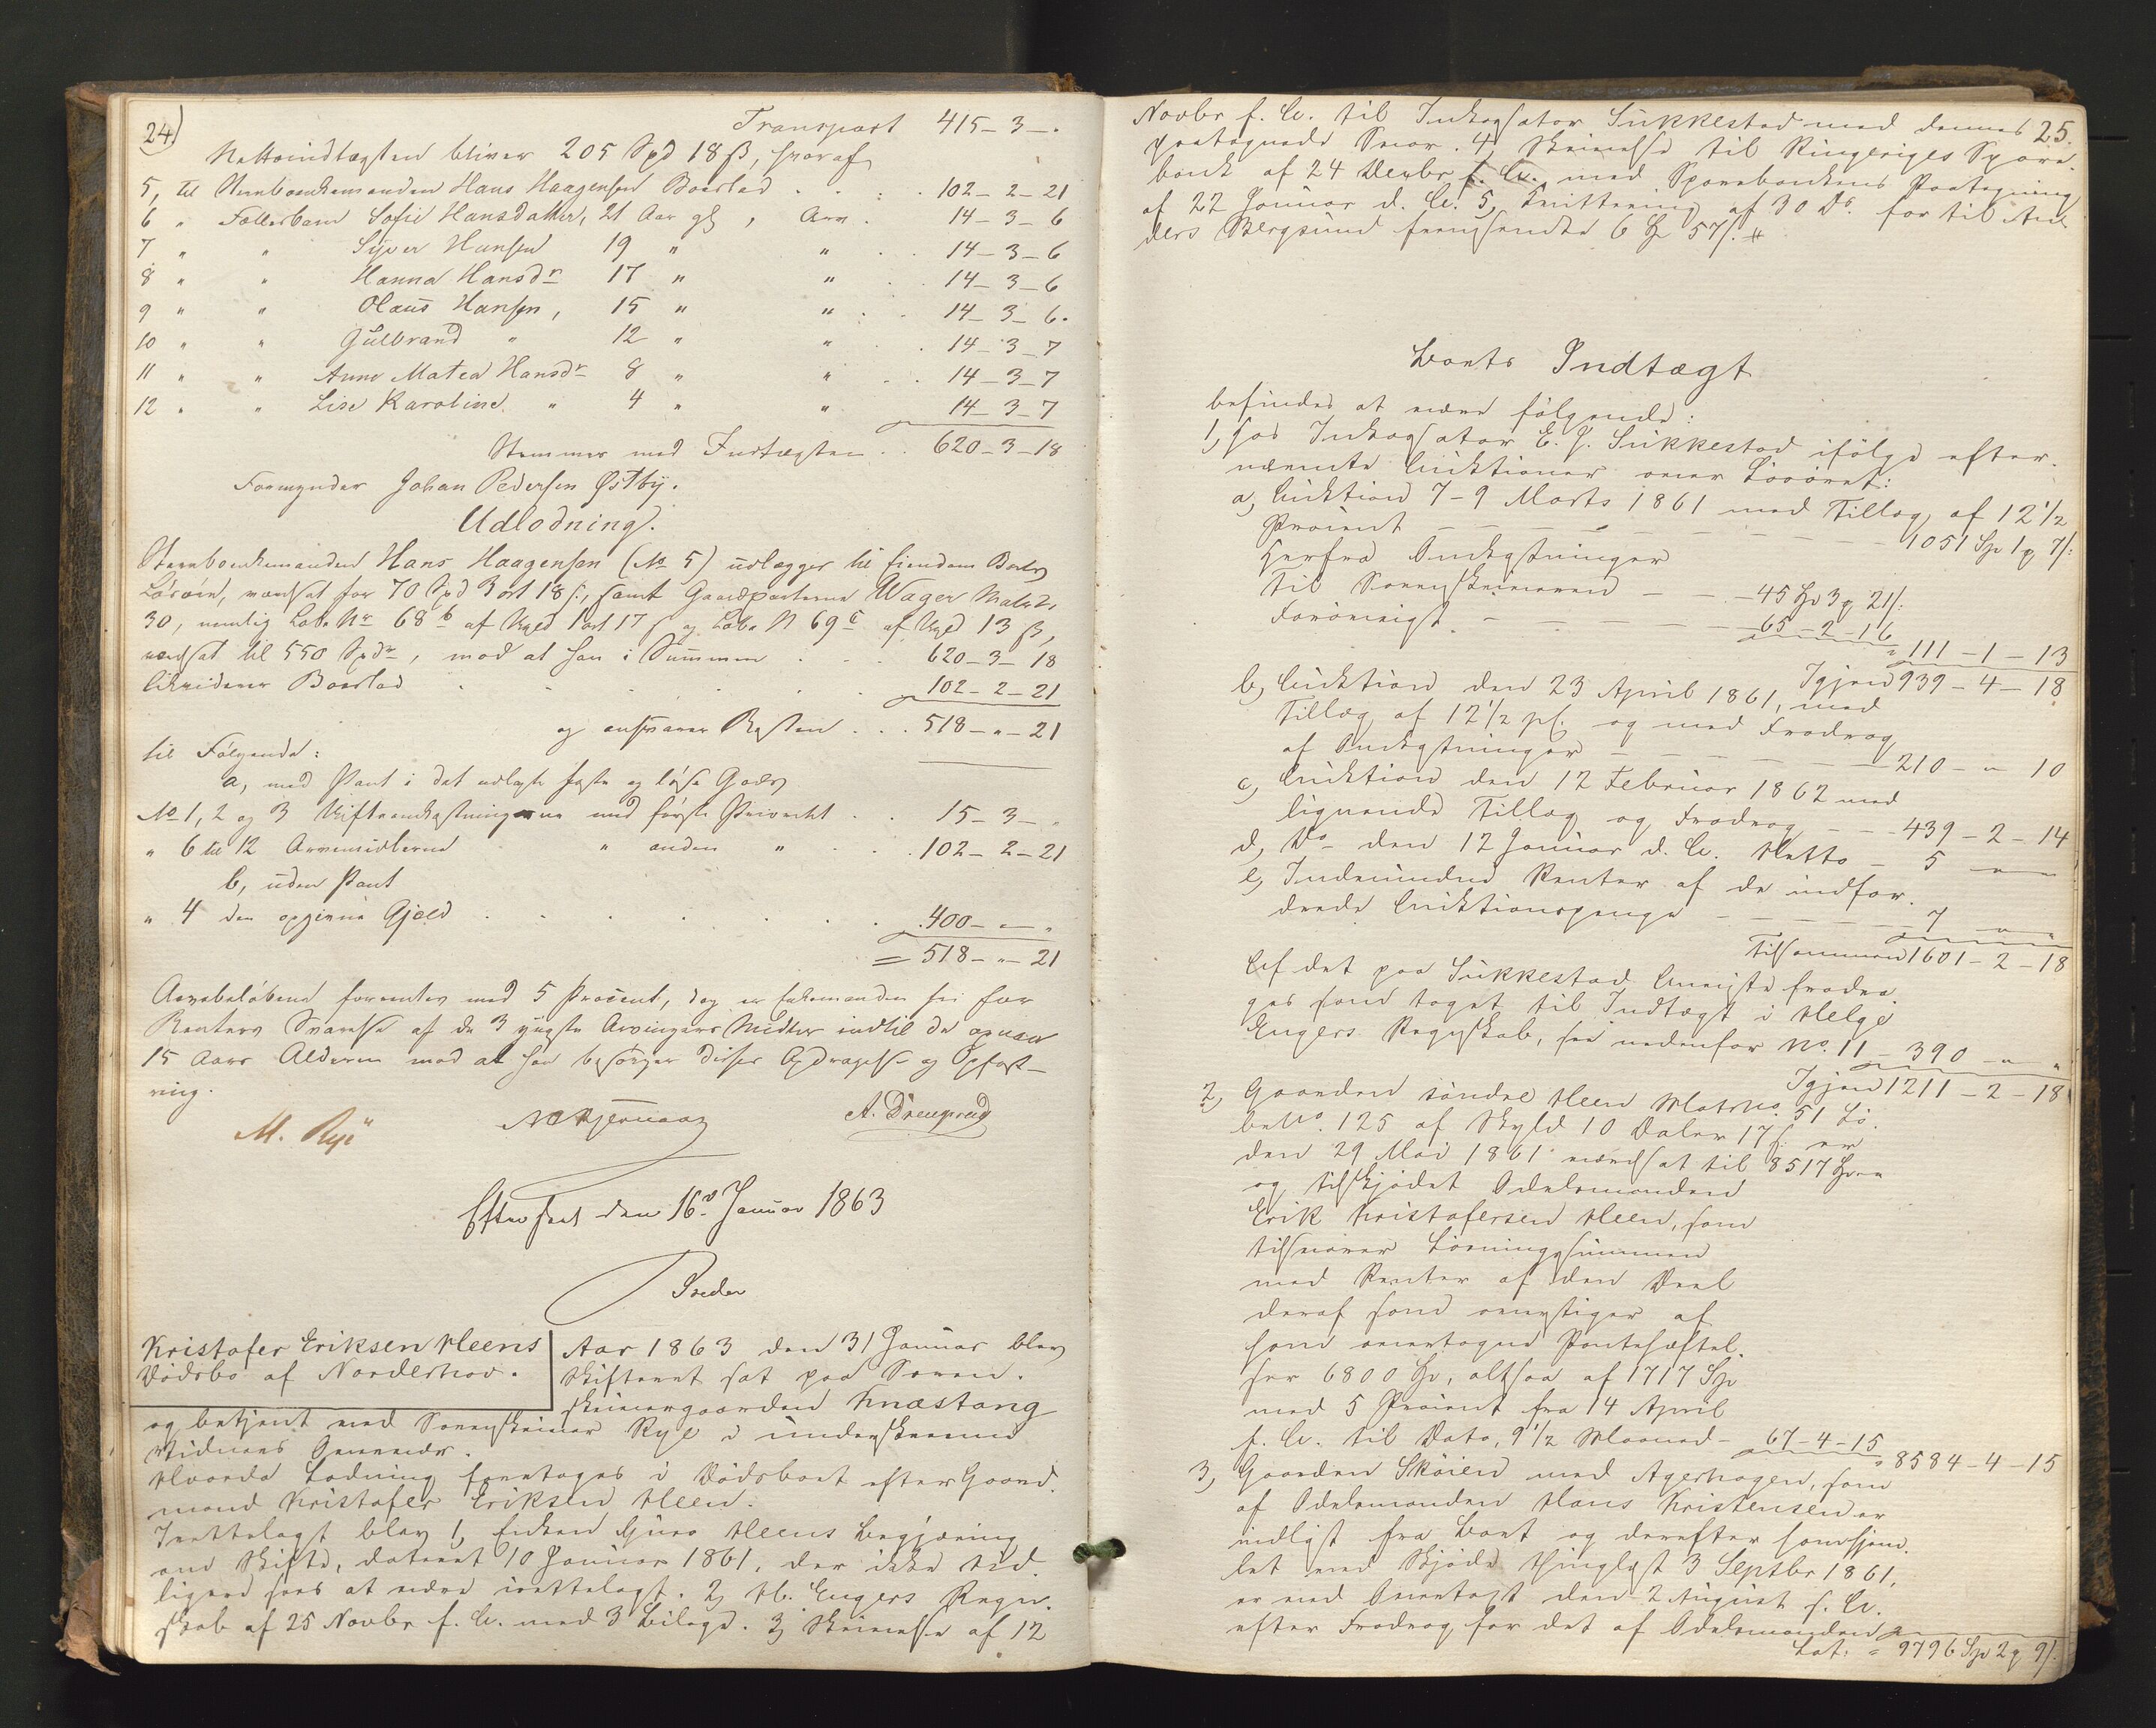 24)
Transport 415 - 3 - .
Nettoindtægten bliver 205 Spd 18 ß, hvoraf
5, til Sterbboenkemanden Hans Haagensen Boeslod . . . 102 - 2 - 21
6 " Fællesbarn Sofie Hansdatter, 21 Aar gl, Arv . 14 - 3 - 6
7 " " Syver Hansen 19 " " . . 14 - 3 - 6
8 " " Hanna Hansdr 17 " " . . 14 - 3 - 6
9 " " Olaus Hansen, 15 " " . . 14 - 3 - 6.
10 " " Gulbrand " 12 " " . . 14 - 3 - 7
11 " " Anne Matea Hansdr 8 " " . . 14 - 3 - 7
12 " " Lise Karoline " 4 " " 14 - 3 - 7
Stemmer med Indtægten . . 620 - 3 - 18
Formynder Johan Pedersen Østby.
Udlodning.
Sterbboenkemanden Hans Haagensen (No 5) udlægges til Eiendom Boets
Løsøre, vurdsat for 70 Spd 3 ort 18 ß, samt Gaardparterne Wager Matr. No
30, nemlig Løbe Nr 68 b af Skyld 1 ort 17 ß og Løbe N 69 c af Skyld 13 ß,
værdsat til 550 Spdr, mod at han i Summen . . . 620 - 3 - 18
likviderer Boeslod . . . . . . 102 - 2 - 21
og ansvarer Resten . . . 518 - " - 21
til Følgende:
a, med Pant i det udlagte faste og løse Gods
No 1, 2 og 3 Skifteomkostningerne med første Prioritet . . 15 - 3 - "
" 6 til 12 Arvemidlerne " anden " . . . 102 - 2 - 21
b, uden Pant
" 4 den opgivne Gjæld . . . . . . 400 - " - "
= 518 - " - 21
Arvebeløbene forrentes med 5 Procent, dog er Enkemanden fri for
Renters Svarelse af de 3 yngste Arvingers Midler indtil de opnaar
15 Aars Alderen mod at han besørger disses Opdragelse og Opfost-
ring.
M. Rye
N Kjernaas
A. Drengsrud
Efterseet den 16de Januar 1863
Breder
Kristofer Eriksen Heens
Dødsbo af Norderhov.
Aar 1863 den 31 Januar blev
Skifteret sat paa Soren-
skrivergaarden Knæstang
og betjent med Sorenskriver Rye i underskrevne
Vidners Overvær.
Hvorda Lodning foretoges i Dødsboet efter Gaard-
mand Kristofer Eriksen Heen.
Irettelagt blev 1, Enken Guro Heens Begjæring
om Skifte, dateret 10 Januar 1861, der ikke tid-
ligere sees at være irettelagt. 2, H. Engers Regn-
skab af 25 Novbr f. A. med 3 Bilage. 3, Skrivelse af 12
25.
Novbr f. A. til Inkassator Sukkestad med dennes
paategnede Svar. 4, Skrivelse til Ringeriges Spare-
bank af 24 Decbr f. A. med Sparebankens Paategning
af 22 Januar d. A. 5, Kvittering af 30 Ds. for til An-
ders Bergsund fremsendte 6 Sp 57 ß. #
Boets Indtægt
befindes at være følgende:
1, hos Inkassator E. J. Sukkestad ifølge efter-
nævnte Auktioner over Løsøret:
a, Auktion 7-9 Marts 1861 med Tillæg af 12 1/2
Procent - - - - - - 1051 Sp 1 ß 7 ß:
Herfra Omkostninger
til Sorenskriveren - - - 45 Sp 3 21 ß:
Forøvrigt - - - - - 65 - 2 - 16
" 111 - 1 - 13
Igjen 939 - 4 - 18
b, Auktion den 23 April 1861, med
Tillæg af 12 1/2 pC. og med Fradrag
af Omkostninger - - - - - 210 - " - 10
c, Auktion den 12 Februar 1862 med
lignende Tillæg og Fradrag - - - 439 - 2 - 14
d, Do den 12 Januar d. A. Netto - 5 - " - "
e, Indvundne Renter af de indfor-
drede Auktionspenge - - - - - 7 " - "
Tilsammen 1601 - 2 - 18
Af det paa Sukkestad Anviste fradra-
ges som taget til Indtægt i Helge
Engers Regnskab, see nedenfor No. 11 - 390 - " - "
Igjen 1211 - 2 - 18
2, Gaarden søndre Heen Matr No. 51 Lø-
be No. 125 af Skyld 10 Daler 17 ß: er
den 29 Mai 1861 værdsat til 8517 Sp - "
og tilskjødet Odelsmanden
Erik Kristofersen Heen, som
tilsvarer Løsningssummen
med Renter af den Deel
deraf som overstiger af
ham overtagne Pantehæftel-
ser 6800 Sp, altsaa af 1717 Sp
med 5 Procent fra 14 April
f. A. til Dato, 9 1/2 Maaned - 67 - 4 - 15
" 8584 - 4 - 15
3, Gaarden Skøien med Agerhagen, som
af Odelsmanden Hans Kristensen er
indløst fra Boet og derefter ham hjem-
let ved Skjøde thinglæst 3 Septbr 1861,
er ved Overtagt den 2 August s. A.
efter Fradrag for det af Odelsmanden
Lat: = 9796 Sp 2 ß 9 ß.